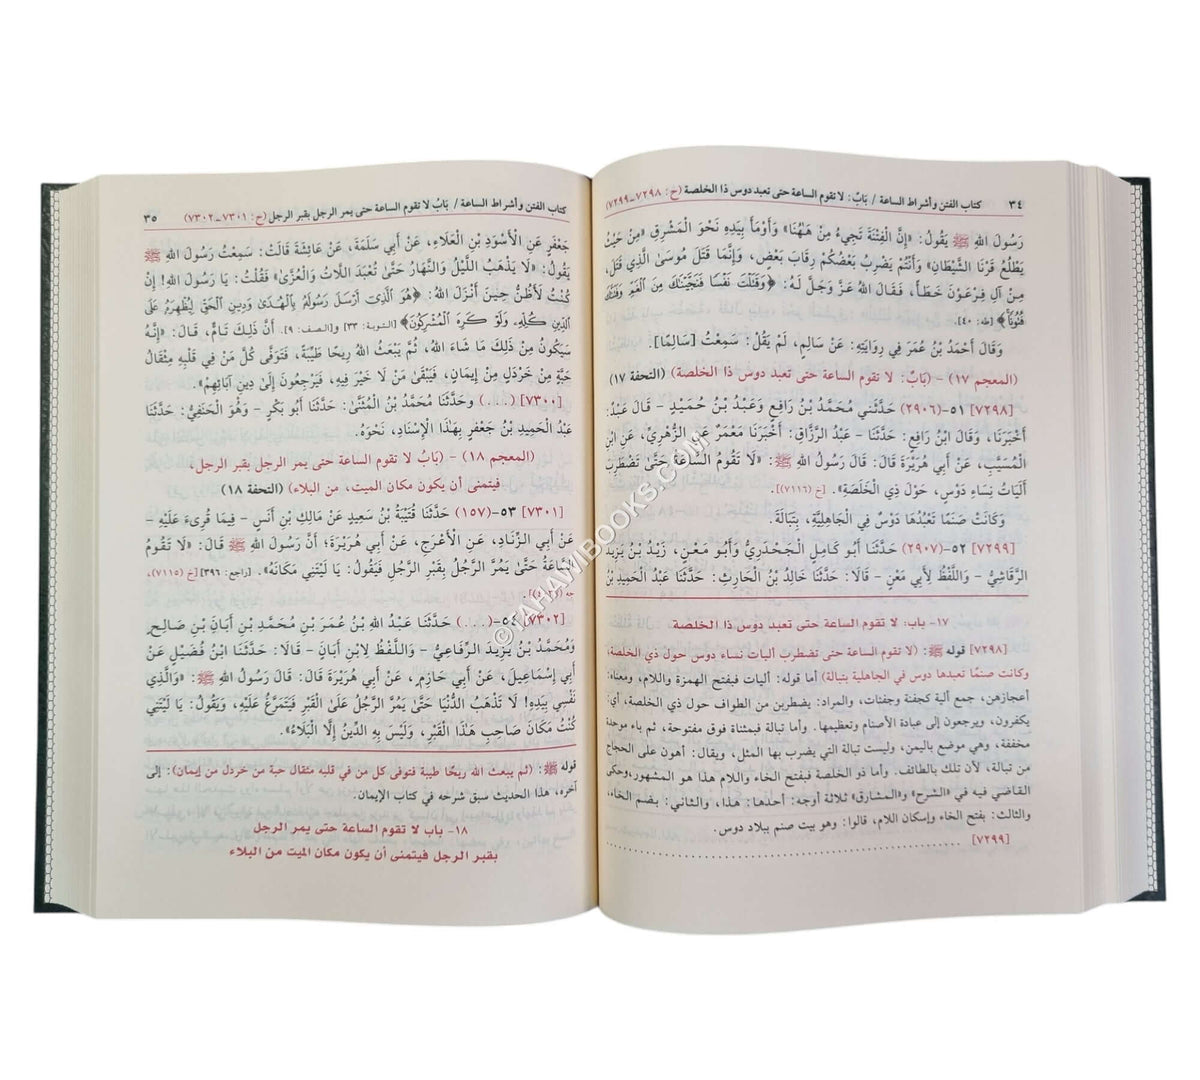 ٣٤ كتاب الفتن وأشراط الساعة / بَابٌ: لا تقوم الساعة حتى تعبد دوس ذا الخلصة (ح: ٧٢٩٨-٧٢٩٩)
رَسُولَ اللهِ ﷺ يَقُولُ: «إِنَّ الْفِتْنَةَ تَجِيءُ مِنْ هٰهُنَا» وَأَوْمَأَ بِيَدِهِ نَحْوَ الْمَشْرِقِ «مِنْ حَيْثُ
يَطْلُعُ قَرْنَا الشَّيْطَانِ» وَأَنْتُمْ يَضْرِبُ بَعْضُكُمْ رِقَابَ بَعْضٍ، وَإِنَّمَا قَتَلَ مُوسَى الَّذِي قَتَلَ،
مِنْ آلِ فِرْعَوْنَ خَطَأً، فَقَالَ اللهُ عَزَّ وَجَلَّ لَهُ: ﴿وَقَتَلْتَ نَفْسًا فَنَجَّيْنَاكَ مِنَ الْغَمِّ وَفَتَنَّاكَ
فُتُونًا﴾ [طه: ٤٠].
وَقَالَ أَحْمَدُ بْنُ عُمَرَ فِي رِوَايَتِهِ: عَنْ سَالِمٍ، لَمْ يَقُلْ: سَمِعْتُ [سَالِمًا].
(المعجم ١٧) - (بَابٌ: لا تقوم الساعة حتى تعبد دوس ذا الخلصة) (التحفة ١٧)
[٧٢٩٨] ٥١-(٢٩٠٦) حَدَّثَنِي مُحَمَّدُ بْنُ رَافِعٍ وَعَبْدُ بْنُ حُمَيْدٍ - قَالَ عَبْدٌ:
أَخْبَرَنَا، وَقَالَ ابْنُ رَافِعٍ: حَدَّثَنَا - عَبْدُ الرَّزَّاقِ: أَخْبَرَنَا مَعْمَرٌ عَنِ الزُّهْرِيِّ، عَنِ ابْنِ
الْمُسَيَّبِ، عَنْ أَبِي هُرَيْرَةَ قَالَ: قَالَ رَسُولُ اللهِ ﷺ: «لَا تَقُومُ السَّاعَةُ حَتَّى تَضْطَرِبَ
أَلَيَاتُ نِسَاءِ دَوْسٍ، حَوْلَ ذِي الْخَلَصَةِ». [خ (٧١١٦)].
وَكَانَتْ صَنَمًا تَعْبُدُهَا دَوْسٌ فِي الْجَاهِلِيَّةِ، بِتَبَالَةَ.
[٧٢٩٩] ٥٢-(٢٩٠٧) حَدَّثَنَا أَبُو كَامِلٍ الْجَحْدَرِيُّ وَأَبُو مَعْنٍ، زَيْدُ بْنُ يَزِيدَ
الرَّقَاشِيُّ - وَاللَّفْظُ لِأَبِي مَعْنٍ - قَالَا: حَدَّثَنَا خَالِدُ بْنُ الْحَارِثِ: حَدَّثَنَا عَبْدُ الْحَمِيدِ بْنُ
١٧- باب: لا تقوم الساعة حتى تعبد دوس ذا الخلصة
[٧٢٩٨] قوله ﷺ: (لا تقوم الساعة حتى تضطرب أليات نساء دوس حول ذي الخلصة،
وكانت صنمًا تعبدها دوس في الجاهلية بتبالة) أما قوله: أليات فبفتح الهمزة واللام، ومعناه:
أعجازهن، جمع ألية كجفنة وجفنات، والمراد: يضطربن من الطواف حول ذي الخلصة، أي:
يكفرون، ويرجعون إلى عبادة الأصنام وتعظيمها. وأما تبالة فبمثناة فوق مفتوحة، ثم باء موحدة
مخففة، وهي موضع باليمن، وليست تبالة التي يضرب بها المثل، ويقال: أهون على الحجاج
من تبالة، لأن تلك بالطائف. وأما ذو الخلصة فبفتح الخاء واللام هذا هو المشهور، وحكى
القاضي فيه في «الشرح» و«المشارق» ثلاثة أوجه: أحدها: هذا، والثاني: بضم الخاء،
والثالث: بفتح الخاء وإسكان اللام، قالوا: وهو بيت صنم ببلاد دوس.
[٧٢٩٩] ........................................
كتاب الفتن وأشراط الساعة / بَابٌ لا تقوم الساعة حتى يمر الرجل بقبر الرجل (ح: ٧٣٠١-٧٣٠٢) ٣٥
جَعْفَرٍ عَنِ الْأَسْوَدِ بْنِ الْعَلَاءِ، عَنْ أَبِي سَلَمَةَ، عَنْ عَائِشَةَ قَالَتْ: سَمِعْتُ رَسُولَ اللهِ ﷺ
يَقُولُ: «لَا يَذْهَبُ اللَّيْلُ وَالنَّهَارُ حَتَّىٰ تُعْبَدَ اللَّاتُ وَالْعُزَّىٰ» فَقُلْتُ: يَا رَسُولَ اللهِ! إِنْ
كُنْتُ لَأَظُنُّ حِينَ أَنْزَلَ اللهُ: ﴿هُوَ الَّذِي أَرْسَلَ رَسُولَهُ بِالْهُدَىٰ وَدِينِ الْحَقِّ لِيُظْهِرَهُ عَلَى
الدِّينِ كُلِّهِ وَلَوْ كَرِهَ الْمُشْرِكُونَ﴾ [التوبة: ٣٣] و[الصف: ٩]. أَنَّ ذَلِكَ تَامٌّ، قَالَ: «إِنَّهُ
سَيَكُونُ مِنْ ذَلِكَ مَا شَاءَ اللهُ، ثُمَّ يَبْعَثُ اللهُ رِيحًا طَيِّبَةً، فَتَوَفَّى كُلَّ مَنْ فِي قَلْبِهِ مِثْقَالُ
حَبَّةٍ مِنْ خَرْدَلٍ مِنْ إِيمَانٍ، فَيَبْقَىٰ مَنْ لَا خَيْرَ فِيهِ، فَيَرْجِعُونَ إِلَىٰ دِينِ آبَائِهِمْ».
[٧٣٠٠] (...) وحَدَّثَنَا مُحَمَّدُ بْنُ الْمُثَنَّىٰ: حَدَّثَنَا أَبُو بَكْرٍ - وَهُوَ الْحَنَفِيُّ: حَدَّثَنَا
عَبْدُ الْحَمِيدِ بْنُ جَعْفَرٍ بِهٰذَا الْإِسْنَادِ، نَحْوَهُ.
(المعجم ١٨) - (بَابُ لا تقوم الساعة حتى يمر الرجل بقبر الرجل،
فيتمنى أن يكون مكان الميت، من البلاء) (التحفة ١٨)
[٧٣٠١] ٥٣-(١٥٧) حَدَّثَنَا قُتَيْبَةُ بْنُ سَعِيدٍ عَنْ مَالِكِ بْنِ أَنَسٍ - فِيمَا قُرِىءَ عَلَيْهِ -
عَنْ أَبِي الزِّنَادِ، عَنِ الْأَعْرَجِ، عَنْ أَبِي هُرَيْرَةَ؛ أَنَّ رَسُولَ اللهِ ﷺ قَالَ: «لَا تَقُومُ
السَّاعَةُ حَتَّىٰ يَمُرَّ الرَّجُلُ بِقَبْرِ الرَّجُلِ فَيَقُولُ: يَا لَيْتَنِي مَكَانَهُ». [راجع: ٣٩٦] [خ (٧١١٥)،
جه].
[٧٣٠٢] ٥٤-(...) حَدَّثَنَا عَبْدُ اللهِ بْنُ عُمَرَ بْنِ مُحَمَّدِ بْنِ أَبَانِ بْنِ صَالِحٍ
وَمُحَمَّدُ بْنُ يَزِيدَ الرِّفَاعِيُّ - وَاللَّفْظُ لِابْنِ أَبَانَ - قَالَا: حَدَّثَنَا ابْنُ فُضَيْلٍ عَنْ
أَبِي إِسْمَاعِيلَ، عَنْ أَبِي حَازِمٍ، عَنْ أَبِي هُرَيْرَةَ قَالَ: قَالَ رَسُولُ اللهِ ﷺ: «وَالَّذِي
نَفْسِي بِيَدِهِ! لَا تَذْهَبُ الدُّنْيَا حَتَّىٰ يَمُرَّ الرَّجُلُ عَلَى الْقَبْرِ فَيَتَمَرَّغُ عَلَيْهِ، وَيَقُولُ: يَا لَيْتَنِي
كُنْتُ مَكَانَ صَاحِبِ هٰذَا الْقَبْرِ، وَلَيْسَ بِهِ الدِّينُ إِلَّا الْبَلَاءُ».
قوله ﷺ: (ثم يبعث الله ريحًا طيبة فتوفى كل من في قلبه مثقال حبة من خردل من إيمان): إلى
آخره، هذا الحديث سبق شرحه في كتاب الإيمان.
١٨- باب لا تقوم الساعة حتى يمر الرجل
بقبر الرجل فيتمنى أن يكون مكان الميت من البلاء
© TAHAWIBOOKS.COM